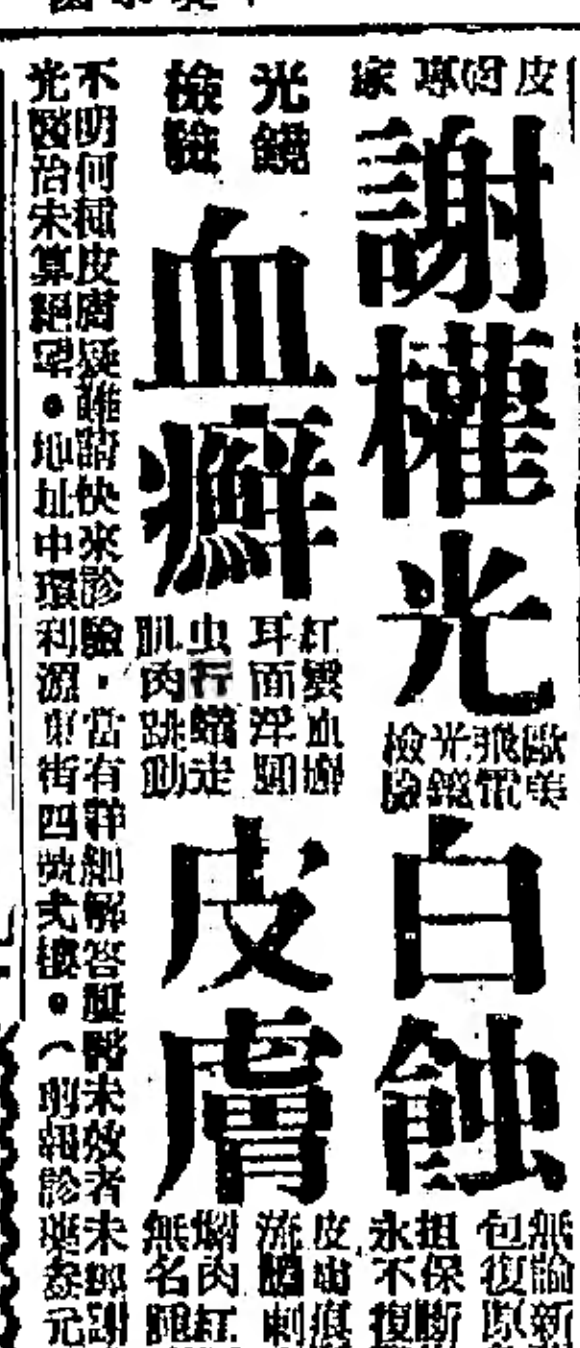 皮膚專家
謝權光
歐美
飛電
光鏡
檢驗
白蝕
無論新
包復原
担保斷
永不復
光鏡
檢驗
血癬
紅雲血癬
耳面浮
虫行蟻走
肌肉跳動
皮膚
皮
痕
流膿刺
爛肉紅
無名腫
不明何種皮膚疑難請快來診驗・當有詳細解答歷醫未效者未經謝
光醫治未算絕望●地址中環利源東街四號弍樓●(剪報診藥叁元